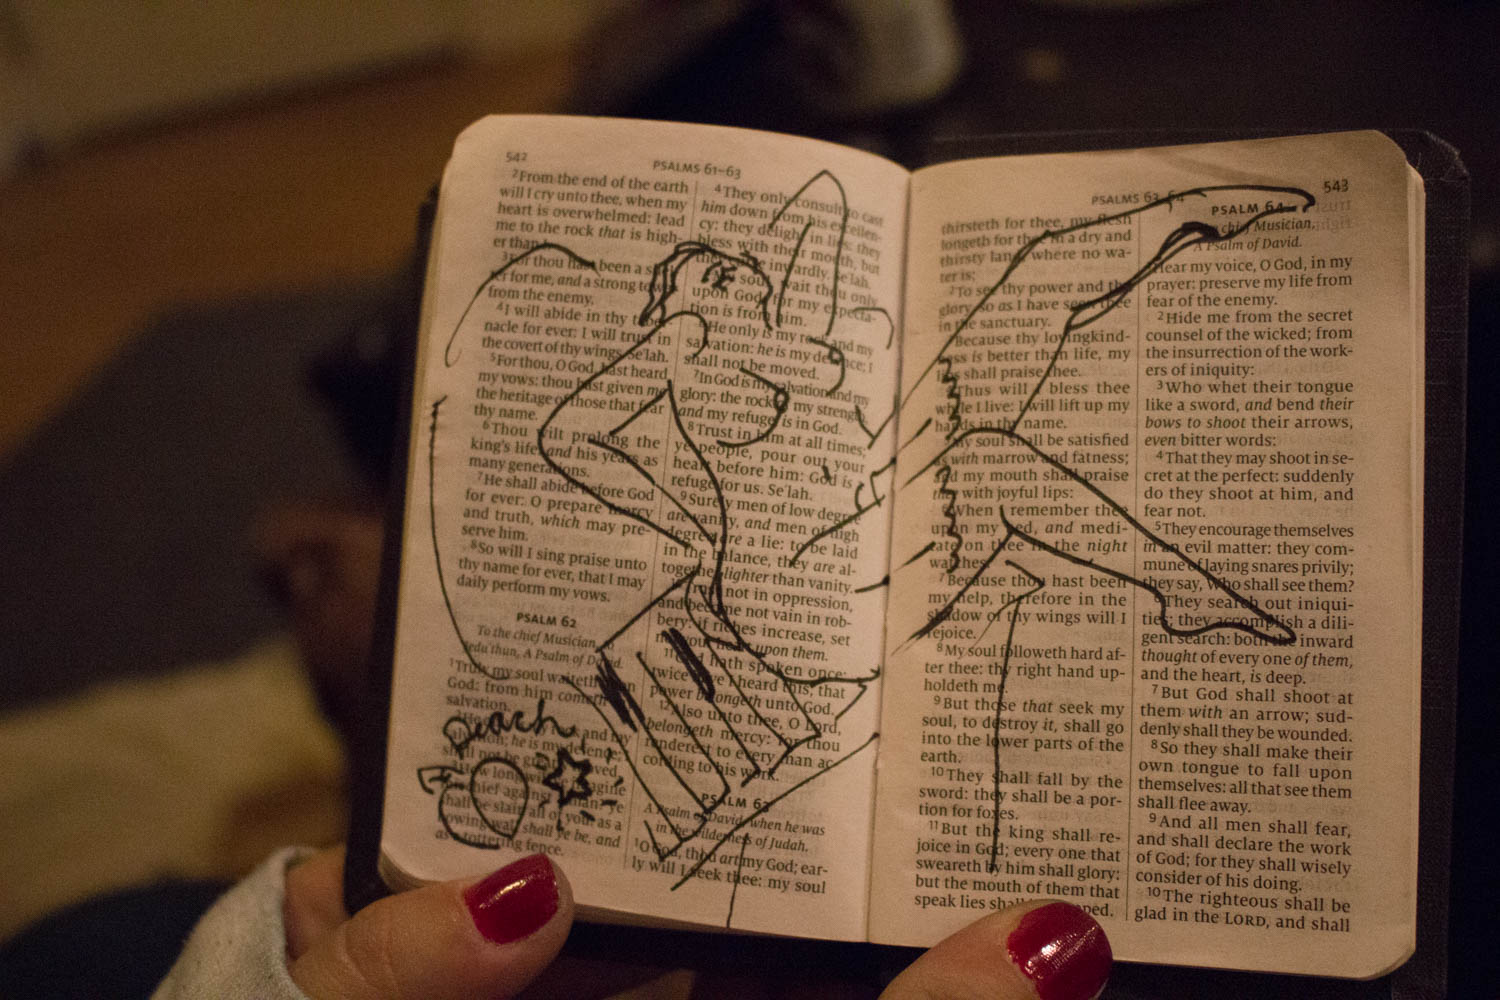 542
PSALMS 61–63
²From the end of the earth
will I cry unto thee, when my
heart is overwhelmed: lead
me to the rock that is high-
er than
³For thou hast been a
for me, and a strong
from the enemy.
⁴I will abide in thy
nacle for ever: I will trust in
the covert of thy wings. Se'lah.
⁵For thou, O God, hast heard
my vows: thou hast given me
the heritage of those that fear
thy name.
⁶Thou wilt prolong the
king's life, and his years as
many generations.
⁷He shall abide before God
for ever: O prepare mercy
and truth, which may pre-
serve him.
⁸So will I sing praise unto
thy name for ever, that I may
daily perform my vows.
PSALM 62
To the chief Musician,
A Psalm of David.
¹Truly my soul waiteth
God: from him cometh
salvation.
and my
he is my
shall not be moved.
³How long will ye imagine
against a man? ye
shall be slain all of you: as a
bowing wall shall ye be, and
as a tottering fence.
⁴They only consult to cast
him down from his excellen-
cy: they delight in lies: they
bless with their mouth, but
they inwardly. Se'lah.
soul, wait thou only
upon God; for my expecta-
tion is from him.
⁶He only is my and my
salvation: he is my defence; I
shall not be moved.
⁷In God is my salvation and my
glory: the rock of my strength,
and my refuge, is in God.
⁸Trust in him at all times;
ye people, pour out your
heart before him: God is
refuge for us. Se'lah.
⁹Surely men of low degree
are vanity, and men of high
degree are a lie: to be laid
in the balance, they are al-
together lighter than vanity.
not in oppression,
and become not vain in rob-
bery: if riches increase, set
not your heart upon them.
¹¹God hath spoken once;
twice have I heard this; that
power belongeth unto God.
¹²Also unto thee, O Lord,
belongeth mercy: for thou
renderest to every man ac-
cording to his work.
PSALM 63
A Psalm of David, when he was
in the wilderness of Judah.
¹O God, thou art my God; ear-
ly will I seek thee: my soul
PSALMS 63–64
543
thirsteth for thee, my flesh
longeth for thee in a dry and
thirsty land, where no wa-
ter is;
²To see thy power and thy
glory, so as I have seen thee
in the sanctuary.
³Because thy lovingkind-
ness is better than life, my
lips shall praise thee.
⁴Thus will I bless thee
while I live: I will lift up my
hands in thy name.
⁵My soul shall be satisfied
as with marrow and fatness;
and my mouth shall praise
thee with joyful lips:
⁶When I remember thee
upon my bed, and medi-
tate on thee in the night
watches.
⁷Because thou hast been
my help, therefore in the
shadow of thy wings will I
rejoice.
⁸My soul followeth hard af-
ter thee: thy right hand up-
holdeth me.
⁹But those that seek my
soul, to destroy it, shall go
into the lower parts of the
earth.
¹⁰They shall fall by the
sword: they shall be a por-
tion for foxes.
¹¹But the king shall re-
joice in God; every one that
sweareth by him shall glory:
but the mouth of them that
speak lies shall
PSALM 64
chief Musician,
A Psalm of David.
Hear my voice, O God, in my
prayer: preserve my life from
fear of the enemy.
²Hide me from the secret
counsel of the wicked; from
the insurrection of the work-
ers of iniquity:
³Who whet their tongue
like a sword, and bend their
bows to shoot their arrows,
even bitter words:
⁴That they may shoot in se-
cret at the perfect: suddenly
do they shoot at him, and
fear not.
⁵They encourage themselves
in an evil matter: they com-
mune of laying snares privily;
they say, Who shall see them?
⁶They search out iniqui-
ties; they accomplish a dili-
gent search: both the inward
thought of every one of them,
and the heart, is deep.
⁷But God shall shoot at
them with an arrow; sud-
denly shall they be wounded.
⁸So they shall make their
own tongue to fall upon
themselves: all that see them
shall flee away.
⁹And all men shall fear,
and shall declare the work
of God; for they shall wisely
consider of his doing.
¹⁰The righteous shall be
glad in the LORD, and shall